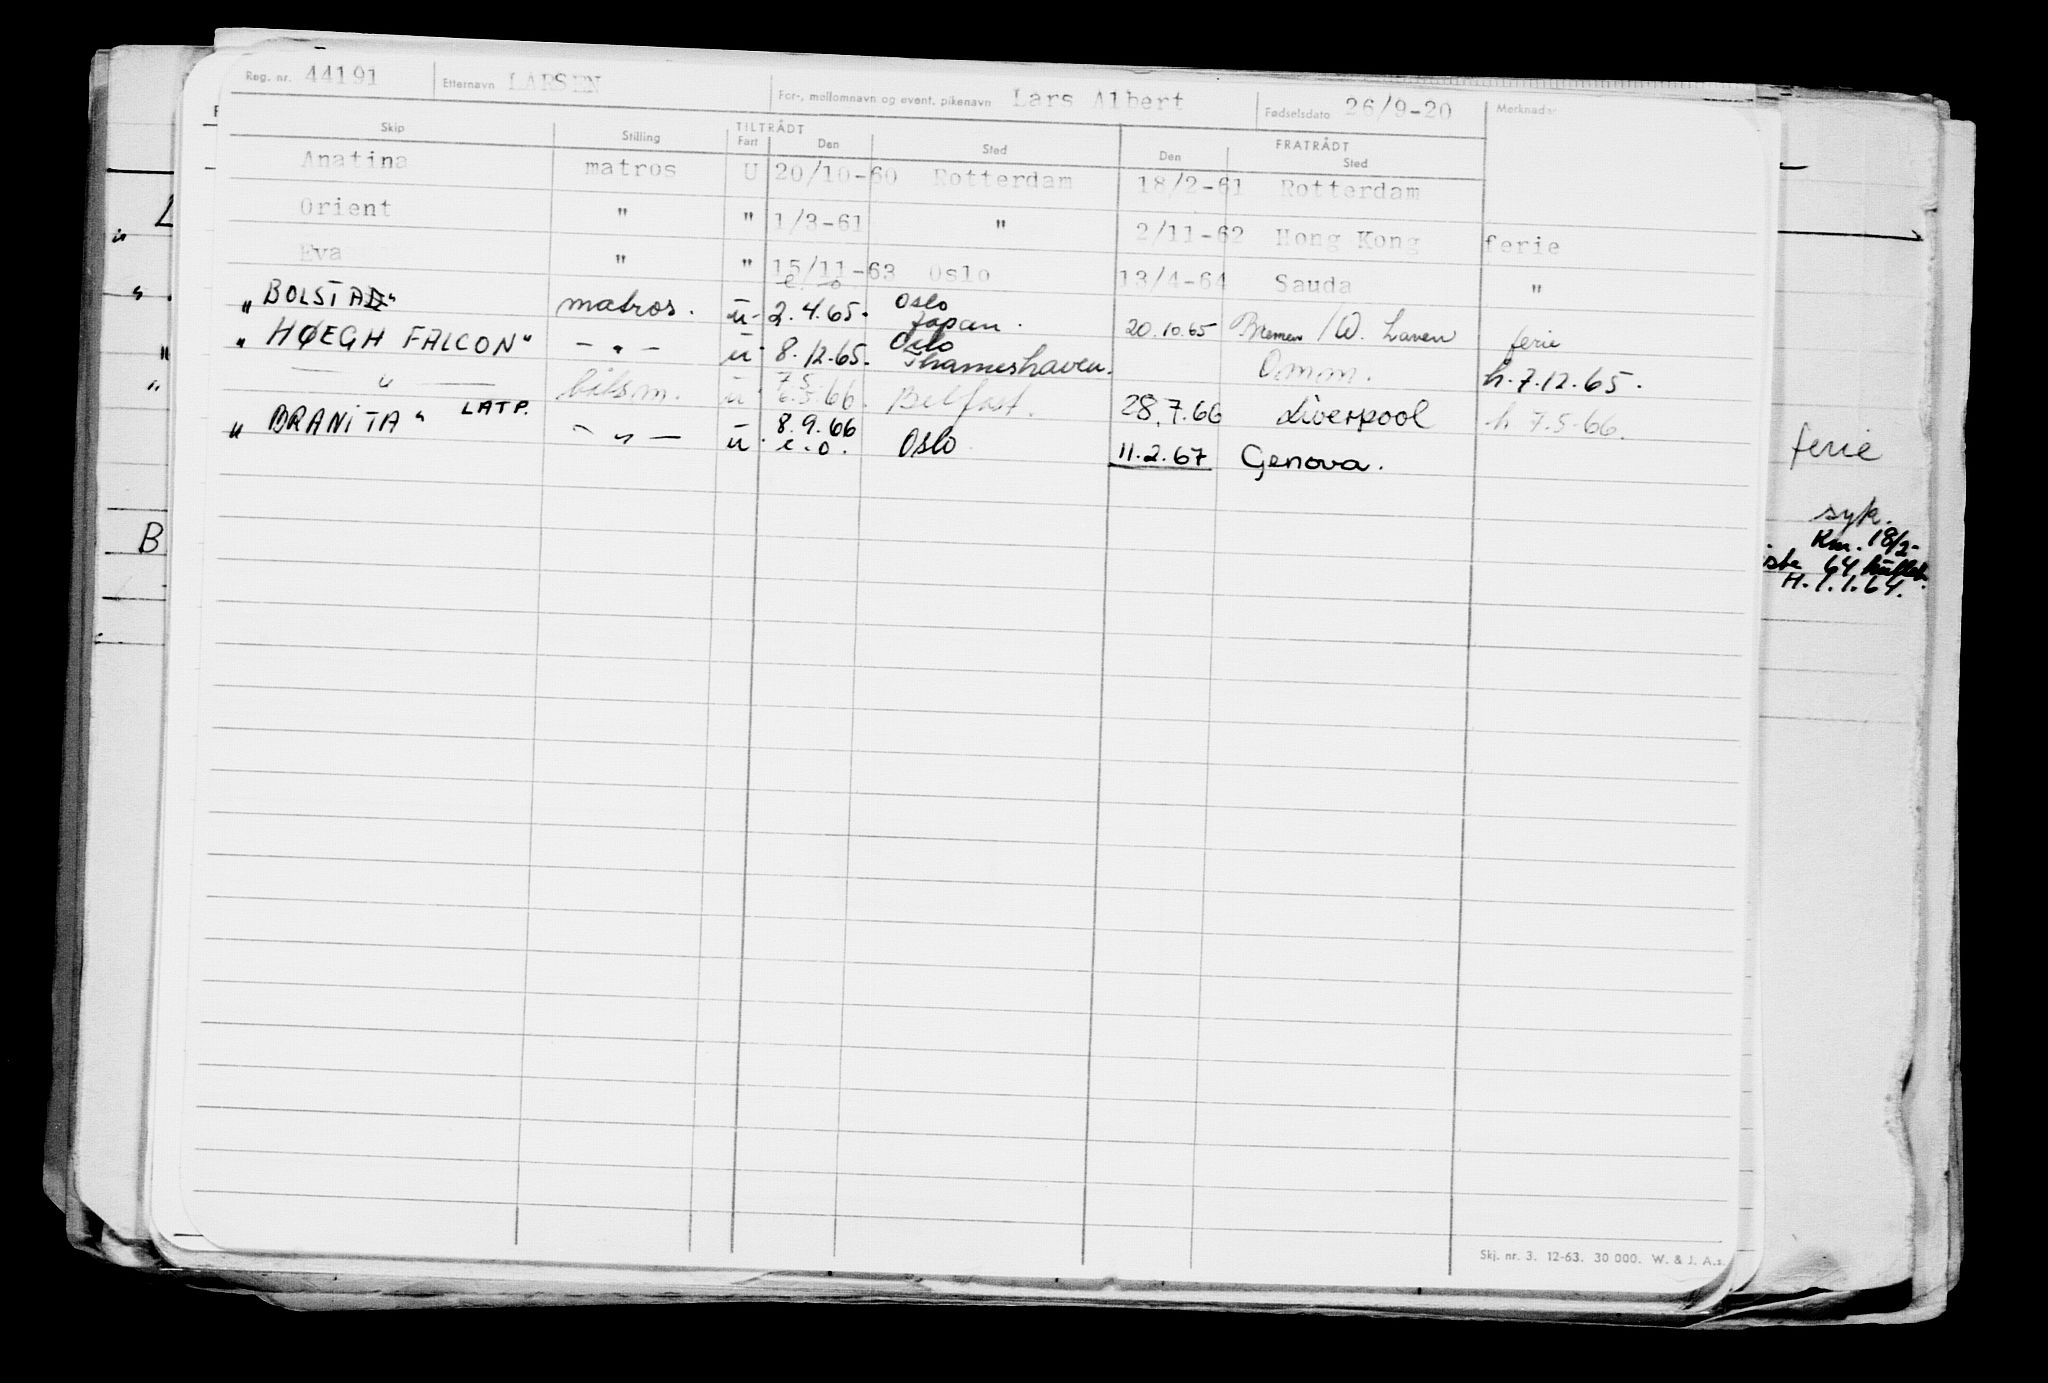 Reg. nr. 44191 Etternavn LARSEN For-, mellomnavn og event. pikenavn Lars Albert Fødselsdato 26/9-20 Merknader
Skip Stilling TILTRÅDT Fart Den Sted FRATRÅDT Den Sted
Anatina matros U 20/10-60 Rotterdam 18/2-61 Rotterdam
Orient " " 1/3-61 " 2/11-62 Hong Kong ferie
Eva " " 15/11-63 Oslo 13/4-64 Sauda "
e. o.
„BOLSTAD" matros. u- 2.4.65. Oslo Japan. 20.10.65 Bremen /W. haven ferie
„HØEGH FALCON" - " - u- 8.12.65. Oslo Thameshaven. Omm. h.7.12.65.
— " — båtsm. u- 7.5. 6.5.66. Belfast. 28.7.66 Liverpool h 7.5-66.
„BRANITA" LATP. - " - u- 8.9.66 e.o. Oslo 11.2.67 Genova.
ferie
syk.
Km. 18/2-
64
H. 1.1.64.
B
Skj. nr. 3. 12-63. 30 000. W. & J. A.s.